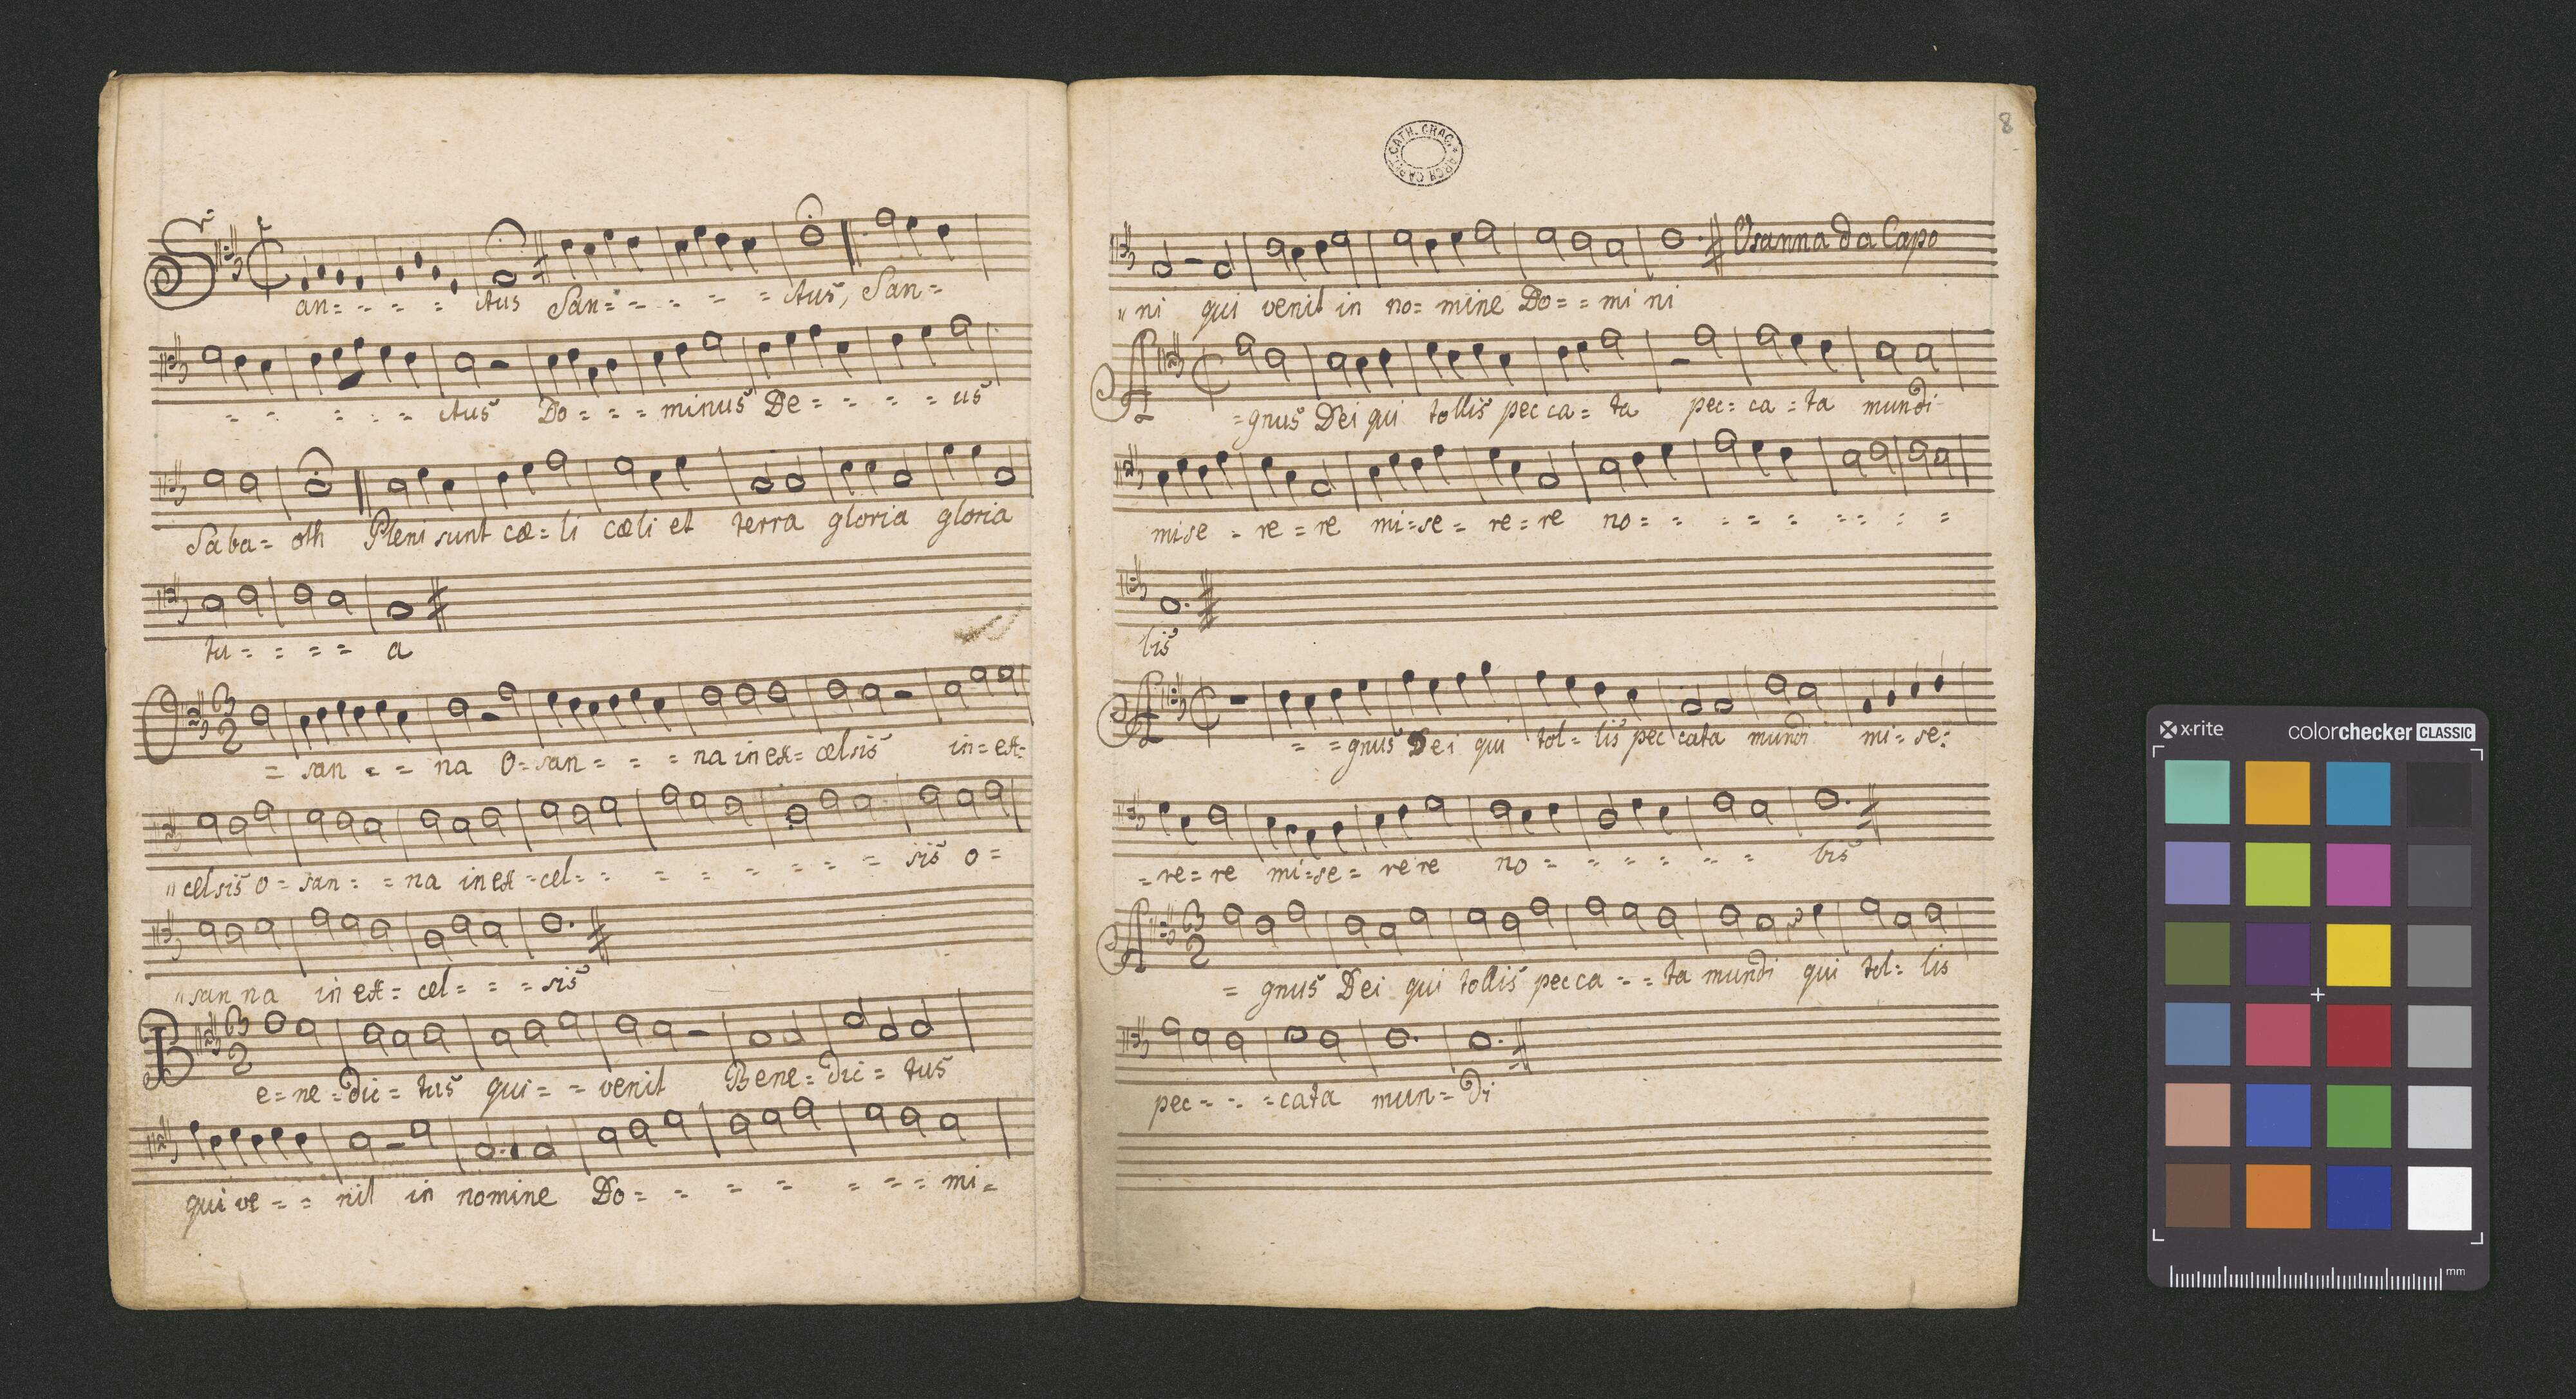 San= - - = ctus San= - - - = ctus, San=
- - = - - ctus Do = - = minus De = - - - us
Saba= oth Pleni sunt cæ= li cæli et terra gloria gloria
tu = = = = a
O = san = - na O= san = - = na in ex= celsis in= ex=
" celsis o = san = = na in ex =cel= - - - - - - - sis o =
" san na in ex= cel= = = sis
B e = ne =dic = tus qui = = venit Bene= dic = tus
qui ve = = nit in nomine Do= - - - - - = mi =
8
CATH. CRAC. ARCH CAPIT.
Osanna da Capo
" ni qui venit in no= mine Do= = mi ni
A =gnus Dei qui tollis pec ca = ta pec= ca = ta mundi
mise = re = re mi=se = re=re no= - - = - - - - =
bis
A = =gnus Dei qui tol= lis pec cata mundi mi= se=
= re= re mi=se= re re no = - - - - - bis
A = gnus Dei qui tollis pec ca - - ta mundi qui tol= lis
pec= - - =cata mun= di
x·rite colorchecker CLASSIC
mm